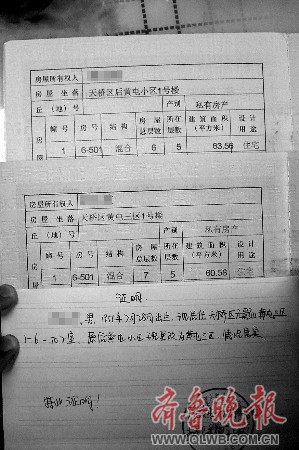 房屋所有权人
房屋坐落 天桥区后黄屯小区1号楼
丘（地）号 产别 私有房产
幢号 房号 结构 房屋总层数 所在层数 建筑面积（平方米） 设计用途
1 6-501 混合 6 5 63.56 住宅
房屋所有权人
房屋坐落 天桥区黄屯三区1号楼
丘（地）号 产别 私有房产
幢号 房号 结构 房屋总层数 所在层数 建筑面积（平方米） 设计用途
1 6-501 混合 7 5 60.58 住宅
证明
男, 1951年2月28日出生, 现居住天桥区 黄屯三区
情况属实
特此证明!
齐鲁晚报
WWW.QLWB.COM.CN